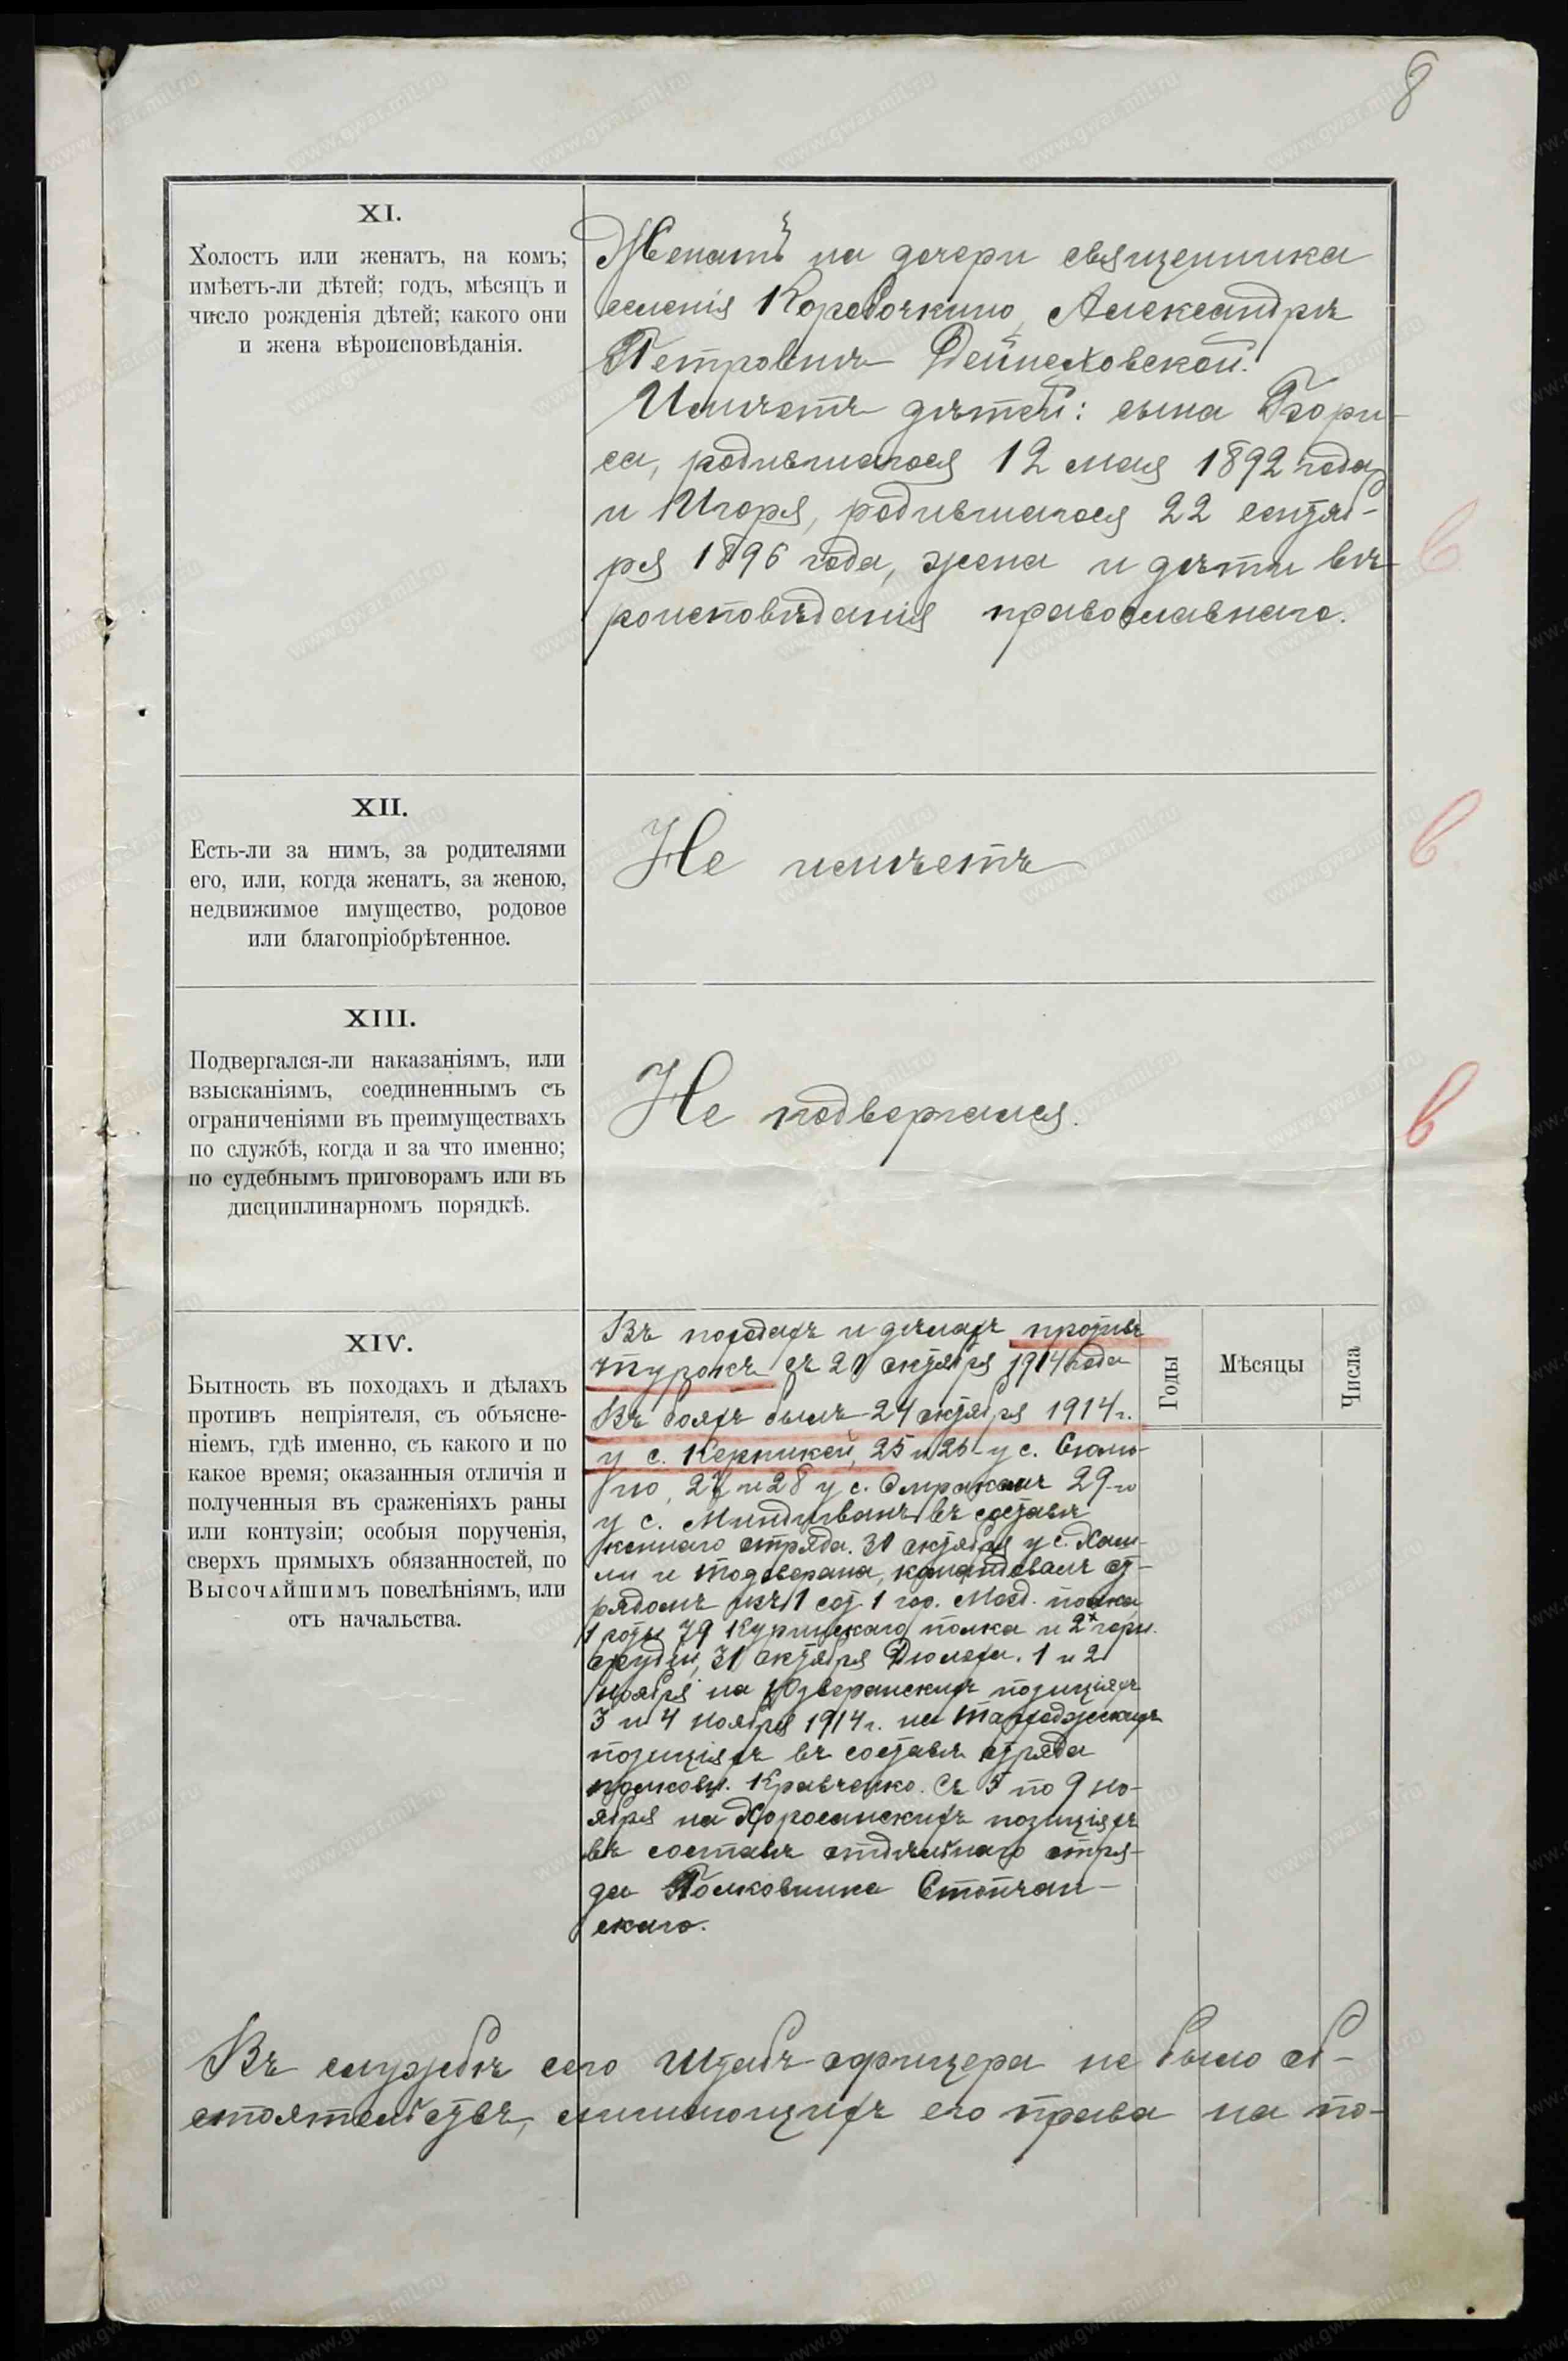 8
XI.
Холостъ или женатъ, на комъ;
имѣетъ-ли дѣтей; годъ, мѣсяцъ и
число рожденія дѣтей; какого они
и жена вѣроисповѣданія.
Женатъ на дочери священника
селенія Коробочкино, Александрѣ
Петровнѣ
Имѣетъ дѣтей: сына Бори-
са, родившагося 12 мая 1892 года
и Игоря, родившагося 22 сентяб-
ря 1896 года, жена и дѣти вѣ-
роисповѣданія православнаго.
в
XII.
Есть-ли за нимъ, за родителями
его, или, когда женатъ, за женою,
недвижимое имущество, родовое
или благопріобрѣтенное.
Не имѣетъ
в.
XIII.
Подвергался-ли наказаніямъ, или
взысканіямъ, соединеннымъ съ
ограниченіями въ преимуществахъ
по службѣ, когда и за что именно;
по судебнымъ приговорамъ или въ
дисциплинарномъ порядкѣ.
Не подвергался.
в
XIV.
Бытность въ походахъ и дѣлахъ
противъ непріятеля, съ объясне-
ніемъ, гдѣ именно, съ какого и по
какое время; оказанныя отличія и
полученныя въ сраженіяхъ раны
или контузіи; особыя порученія,
сверхъ прямыхъ обязанностей, по
Высочайшимъ повелѣніямъ, или
отъ начальства.
Годы
Мѣсяцы
Числа
Въ походахъ и дѣлахъ противъ
турокъ съ 20 октября 1914 года
Въ бояхъ былъ 24 октября 1914 г.
у с. 25 и 26 - у с.
27 и 28 у с. 29-го
у с. въ составѣ
коннаго отряда. 30 октября у с. Хаш-
ли и командовалъ от-
рядомъ изъ 1 сот. 1 гор. Мозд. полка,
1 роты 79 Куринскаго полка и 2х горн.
орудій, 31 октября 1 и 2
ноября на позиціяхъ
3 и 4 ноября 1914 г. на
позиціяхъ въ составѣ отряда
полковн. Кравченко. Съ 5 по 9 но-
ября на Хоросанскихъ позиціяхъ
въ составѣ отдѣльнаго отря-
да Полковника Стопчан-
скаго.
Въ службѣ сего Штабъ-офицера не было об-
стоятельствъ, лишающихъ его права на по-